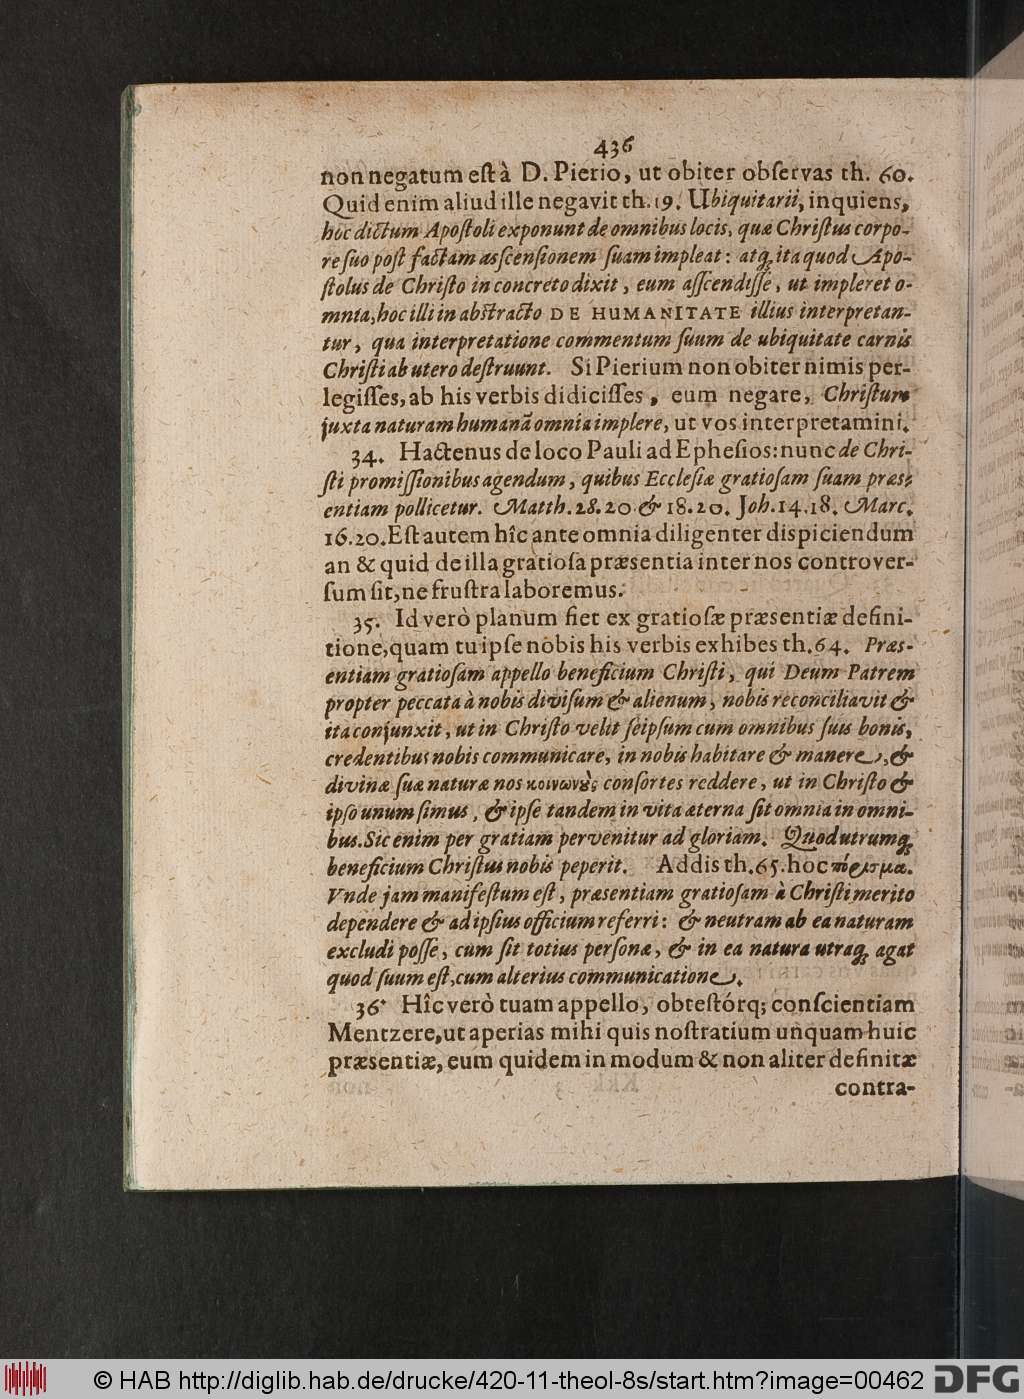 436
non negatum eſt à D. Pierio, ut obiter obſervas th. 60.
Quid enim aliud ille negavit th. 19. Ubiquitarii, inquiens,
hoc dictum Apoſtoli exponunt de omnibus locis, quæ Chriſtus corpo-
re ſuo poſt factam aſscenſionem ſuam impleat: atq́; ita quod Apo-
ſtolus de Chriſto in concreto dixit, eum aſſcendiſſe, ut impleret o-
mnia, hoc illi in abſtracto DE HUMANITATE illius interpretan-
tur, qua interpretatione commentum ſuum de ubiquitate carnis
Chriſti ab utero deſtruunt. Si Pierium non obiter nimis per-
legiſſes, ab his verbis didiciſſes, eum negare, Chriſtum
juxta naturam humanā omnia implere, ut vos interpretamini.
34. Hactenus de loco Pauli ad Epheſios: nunc de Chri-
ſti promiſſionibus agendum, quibus Eccleſiæ gratioſam ſuam præs-
entiam pollicetur. Matth. 28. 20 & 18. 20. Joh. 14. 18. Marc.
16. 20. Eſt autem hîc ante omnia diligenter dispiciendum
an & quid de illa gratioſa præsentia inter nos controver-
ſum ſit, ne fruſtra laboremus.
35. Id verò planum fiet ex gratioſæ præsentiæ defini-
tione, quam tu ipſe nobis his verbis exhibes th. 64. Præs-
entiam gratioſam appello beneficium Chriſti, qui Deum Patrem
propter peccata à nobis diviſum & alienum, nobis reconciliavit &
ita conjunxit, ut in Chriſto velit ſeipſum cum omnibus ſuis bonis,
credentibus nobis communicare, in nobis habitare & manere, &
divinæ ſuæ naturæ nos κοινωνȣ̀ς conſortes reddere, ut in Chriſto &
ipſo unum ſimus, & ipſe tandem in vita æterna ſit omnia in omni-
bus. Sic enim per gratiam pervenitur ad gloriam. Quod utrumq́;
beneficium Chriſtus nobis peperit. Addis th. 65. hoc πόρισμα.
Vnde jam manifeſtum eſt, præsentiam gratioſam à Chriſti merito
dependere & ad ipſius officium referri: & neutram ab ea naturam
excludi poſſe, cum ſit totius perſonæ, & in ea natura utraq́; agat
quod ſuum eſt, cum alterius communicatione.
36. Hîc verò tuam appello, obteſtórq; conſcientiam
Mentzere, ut aperias mihi quis noſtratium unquam huic
præsentiæ, eum quidem in modum & non aliter definitæ
contra-
© HAB http://diglib.hab.de/drucke/420-11-theol-8s/start.htm?image=00462
DFG